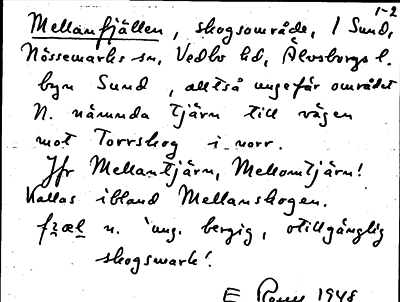 1-2
Mellanfjällen, skogsområde, i Sund,
Nössemarks sn, Vedbo hd, Älvsborgs l.
byn Sund, alltså ungefär området
N. nämnda tjärn till vägen
mot Torrskog i norr.
Jfr Mellantjärn, Mellomtjärn!
Kallas ibland Mellanskogen.
fjæl n. 'ung. bergig, otillgänglig
skogsmark'.
E 1948